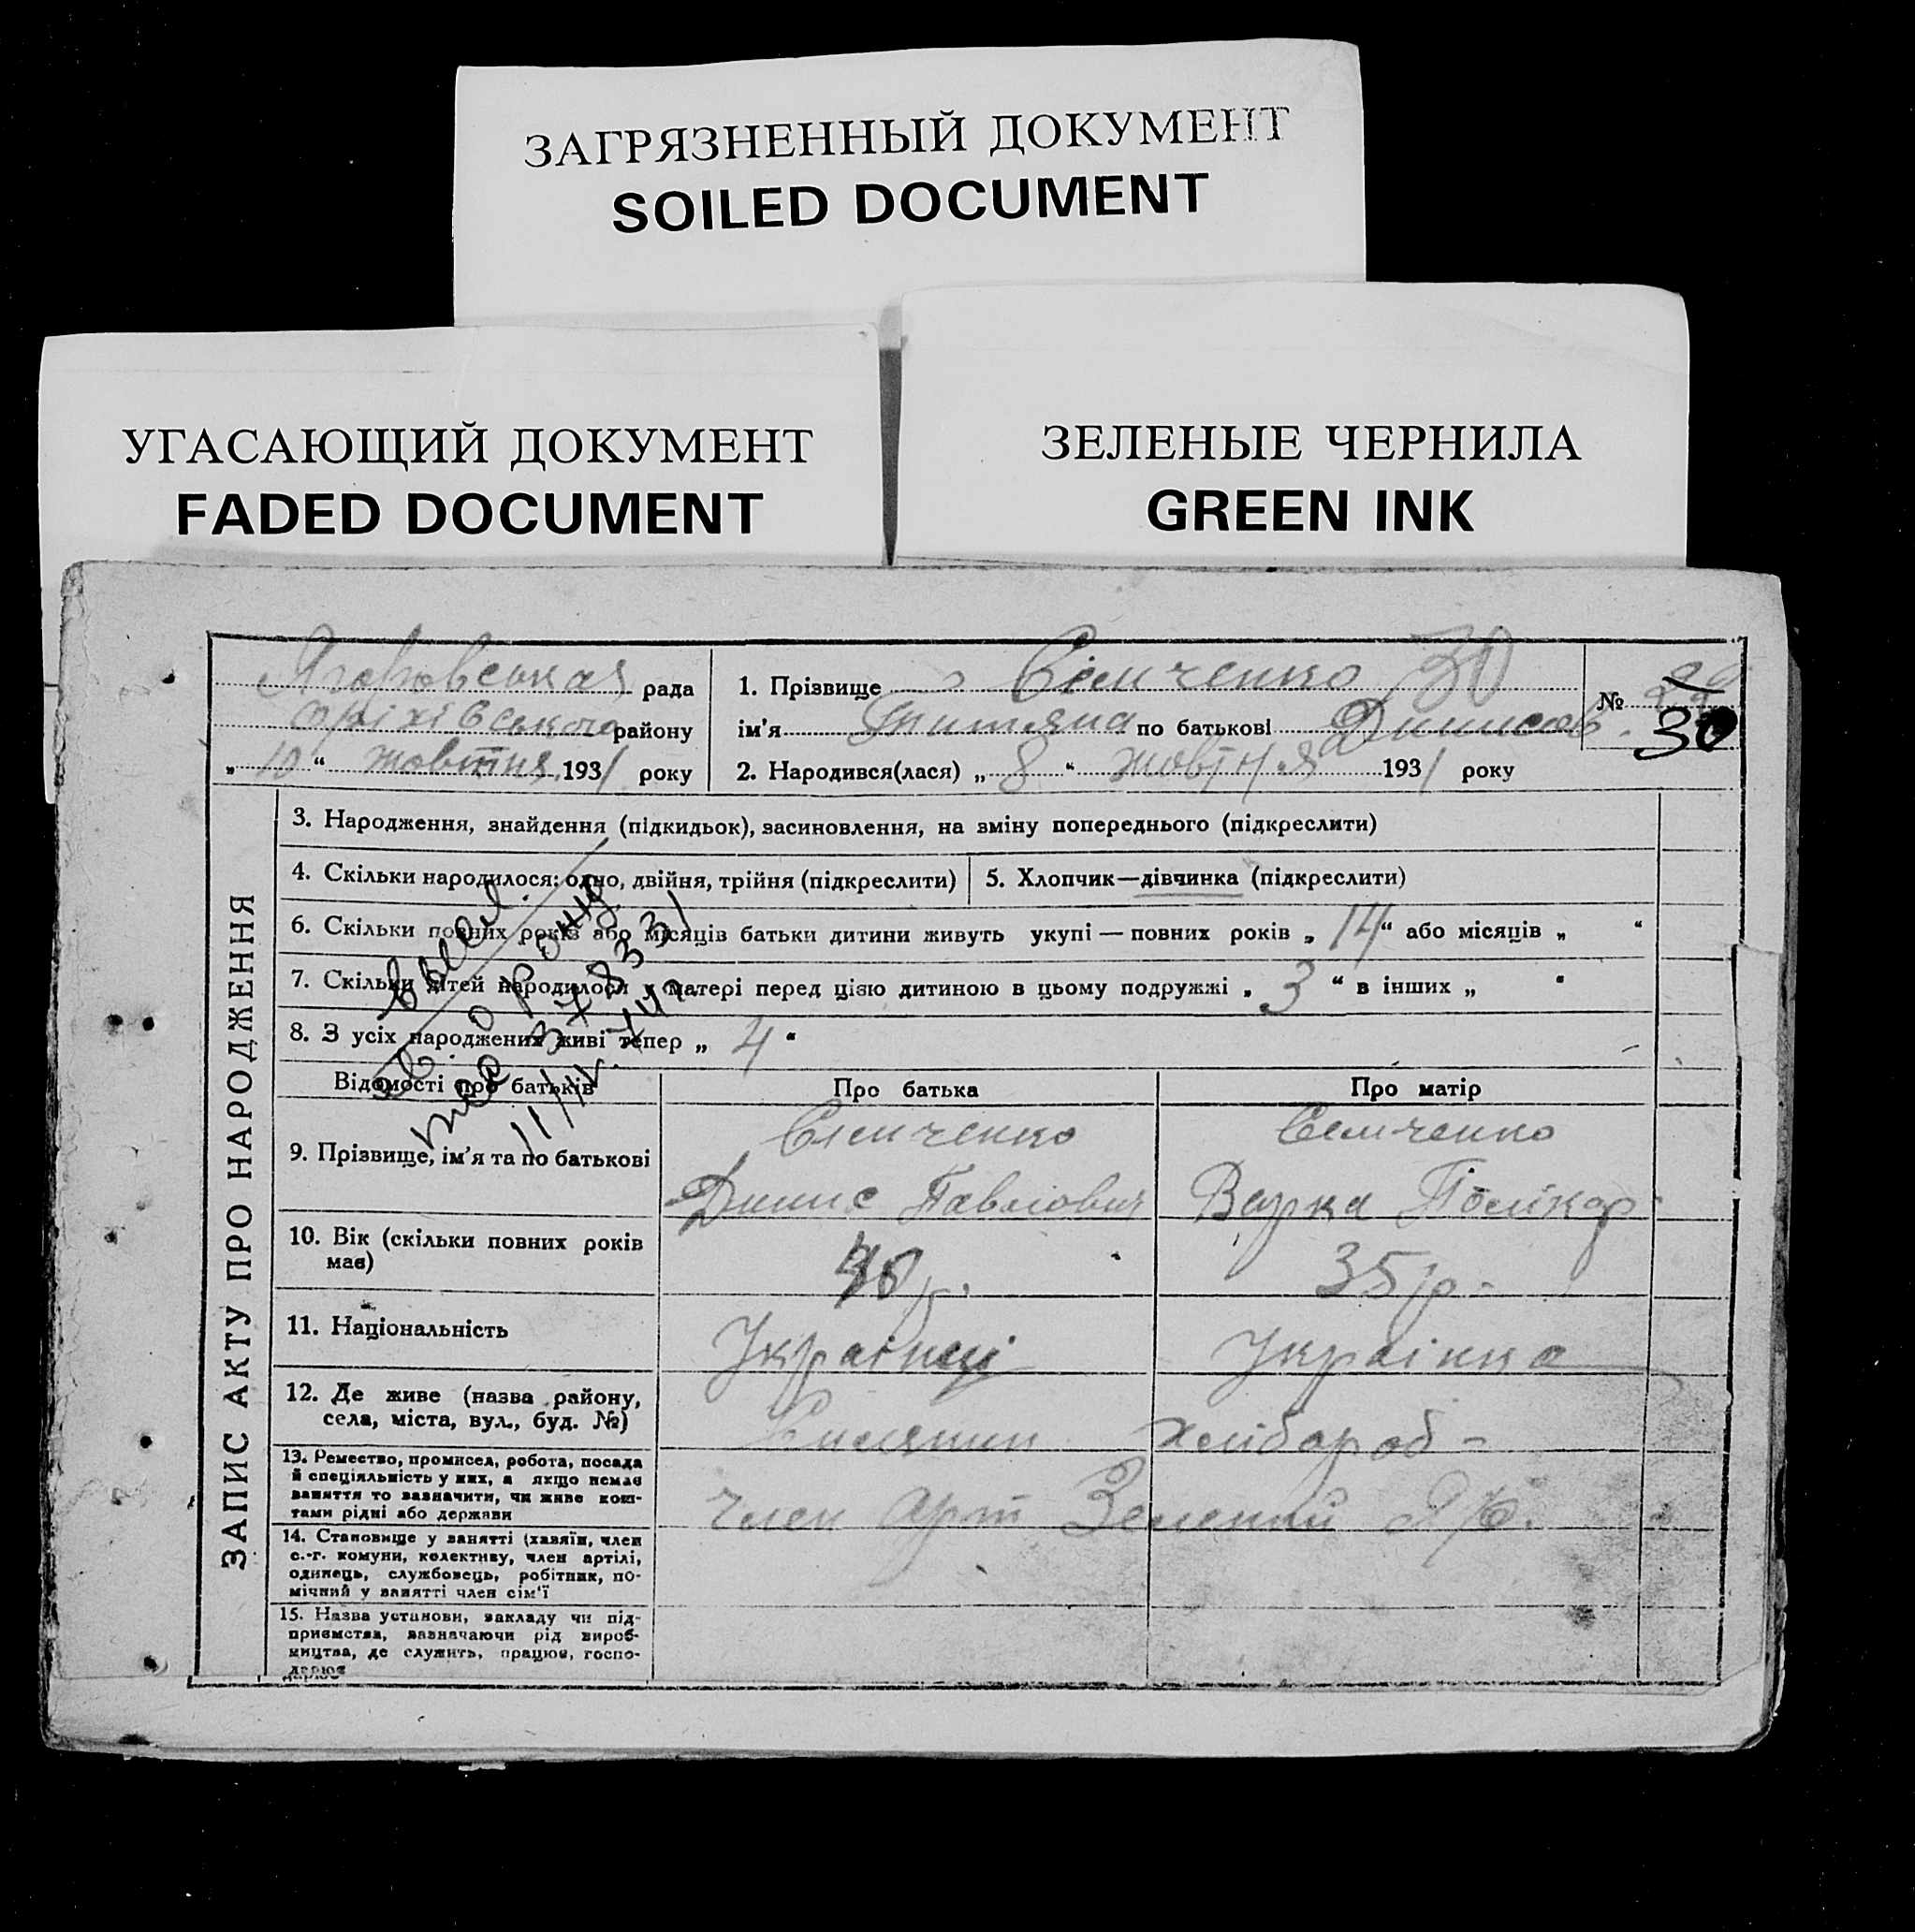 ЗАГРЯЗНЕННЫЙ ДОКУМЕНТ
SOILED DOCUMENT
УГАСАЮЩИЙ ДОКУМЕНТ
FADED DOCUMENT
ЗЕЛЕНЫЕ ЧЕРНИЛА
GREEN INK
рада
Оріхівського району
„ 10 “ жовтня 1931 року
1. Прізвище Семченко 30
ім'я по батькові Динисов.
2. Народився(лася) „ 8 “ жовтня 1931 року
№ 30
ЗАПИС АКТУ ПРО НАРОДЖЕННЯ
3. Народження, знайдення (підкидьок), засиновлення, на зміну попереднього (підкреслити)
4. Скільки народилося: одно, двійня, трійня (підкреслити)
5. Хлопчик—дівчинка (підкреслити)
6. Скільки повних років або місяців батьки дитини живуть укупі — повних років „ 14 “ або місяців „ “
7. Скільки дітей народилося у матері перед цією дитиною в цьому подружжі „ 3 “ в інших „ “
8. З усіх народжених живі тепер „ 4 “
Відомості про батьків
Про батька
Про матір
9. Прізвище, ім'я та по батькові
Семченко
Динис Павлович
Семченко
Варка Полікар
10. Вік (скільки повних років
має)
р.
35 р.
11. Національність
Українці
Українка
12. Де живе (назва району,
села, міста, вул., буд. №)
хлібороб -
13. Ремество, промисел, робота, посада
й спеціяльність у них, а якщо немає
заняття то зазначити, чи живе кош-
тами рідні або держави
член арт Зелений Яр.
14. Становище у занятті (хазяїн, член
с.-г. комуни, колективу, член артілі,
одинець, службовець, робітник, по-
мічний у занятті член сім'ї
15. Назва установи, закладу чи під-
приємства, зазначаючи рід вироб-
ництва, де служить, працює, госпо-
дарює